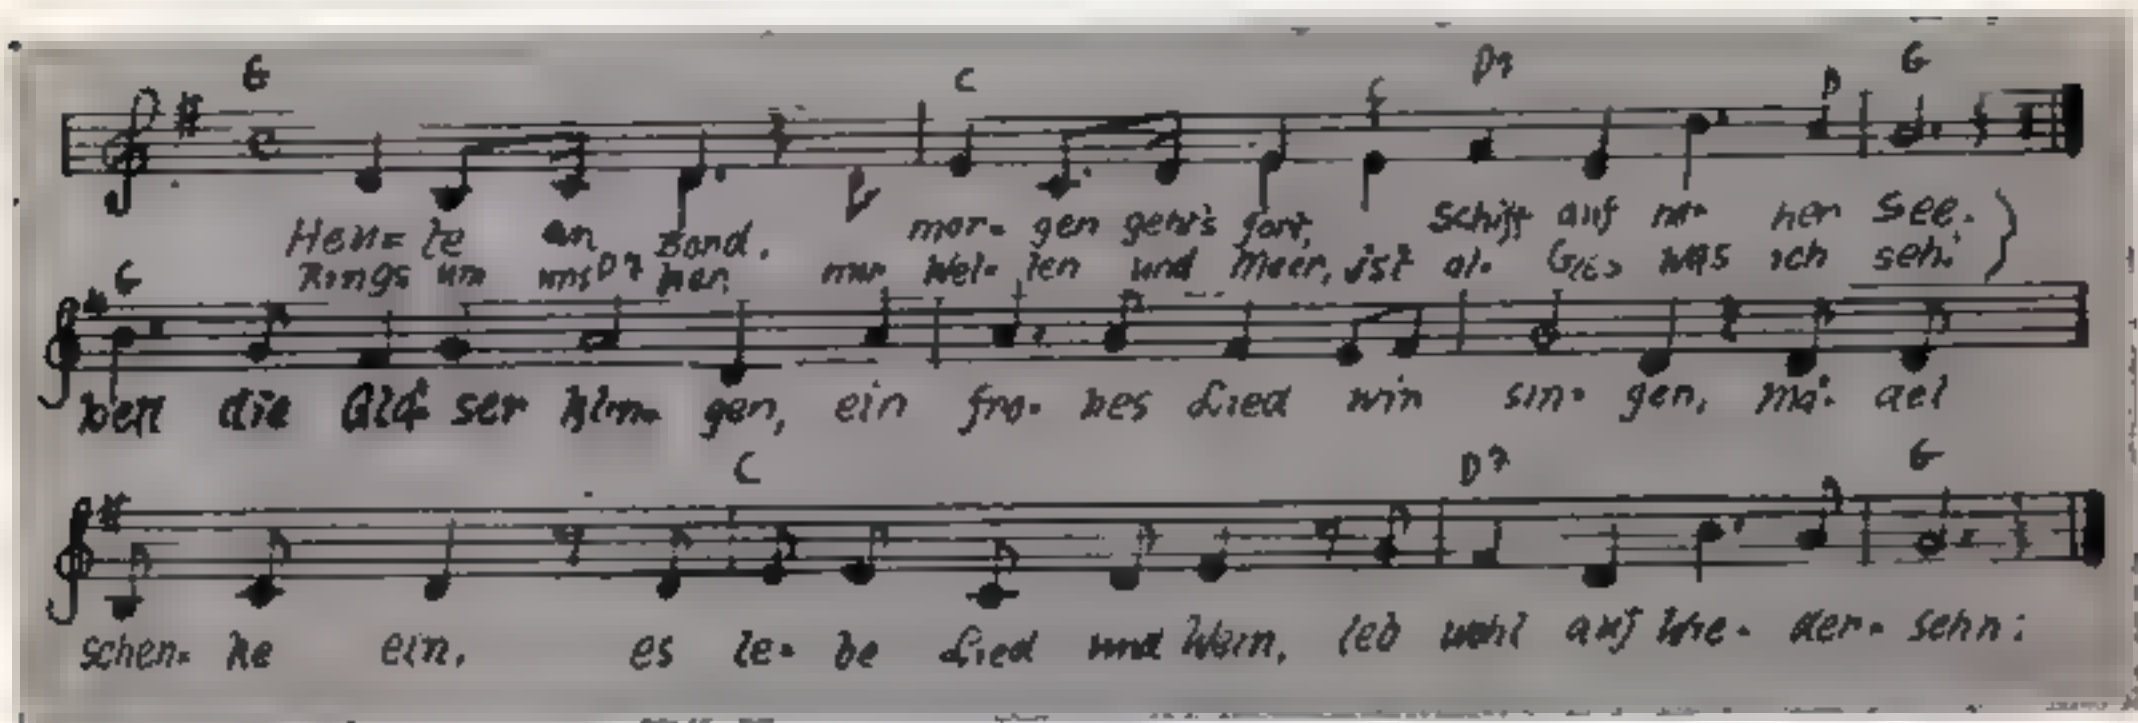 G C D7 D G
Heu= te an Bord, mor- gen geht's fort, Schiff auf ho- her See.
Rings um uns her, nur Wel- len und Meer, ist al- les was ich seh:
G D7
bell die Glä- ser klin- gen, ein fro- hes Lied win sin- gen, mä- del
C D7 G
schen= ke ein, es le- be Lied und Wein, leb wohl auf Wie- der- sehn: